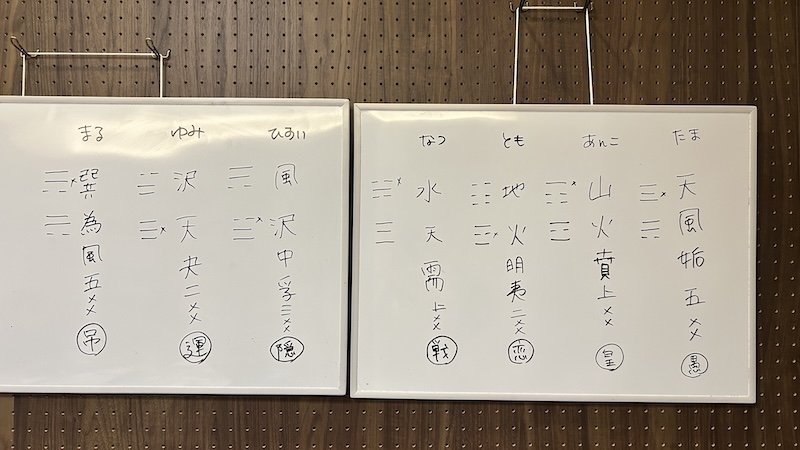 たま
天風姤五爻
愚
あんこ
山火賁上爻
皇
とも
地火明夷二爻
恋
なつ
水天需上爻
戦
ひすい
風沢中孚三爻
隠
ゆみ
沢天夬二爻
運
まる
巽為風五爻
吊